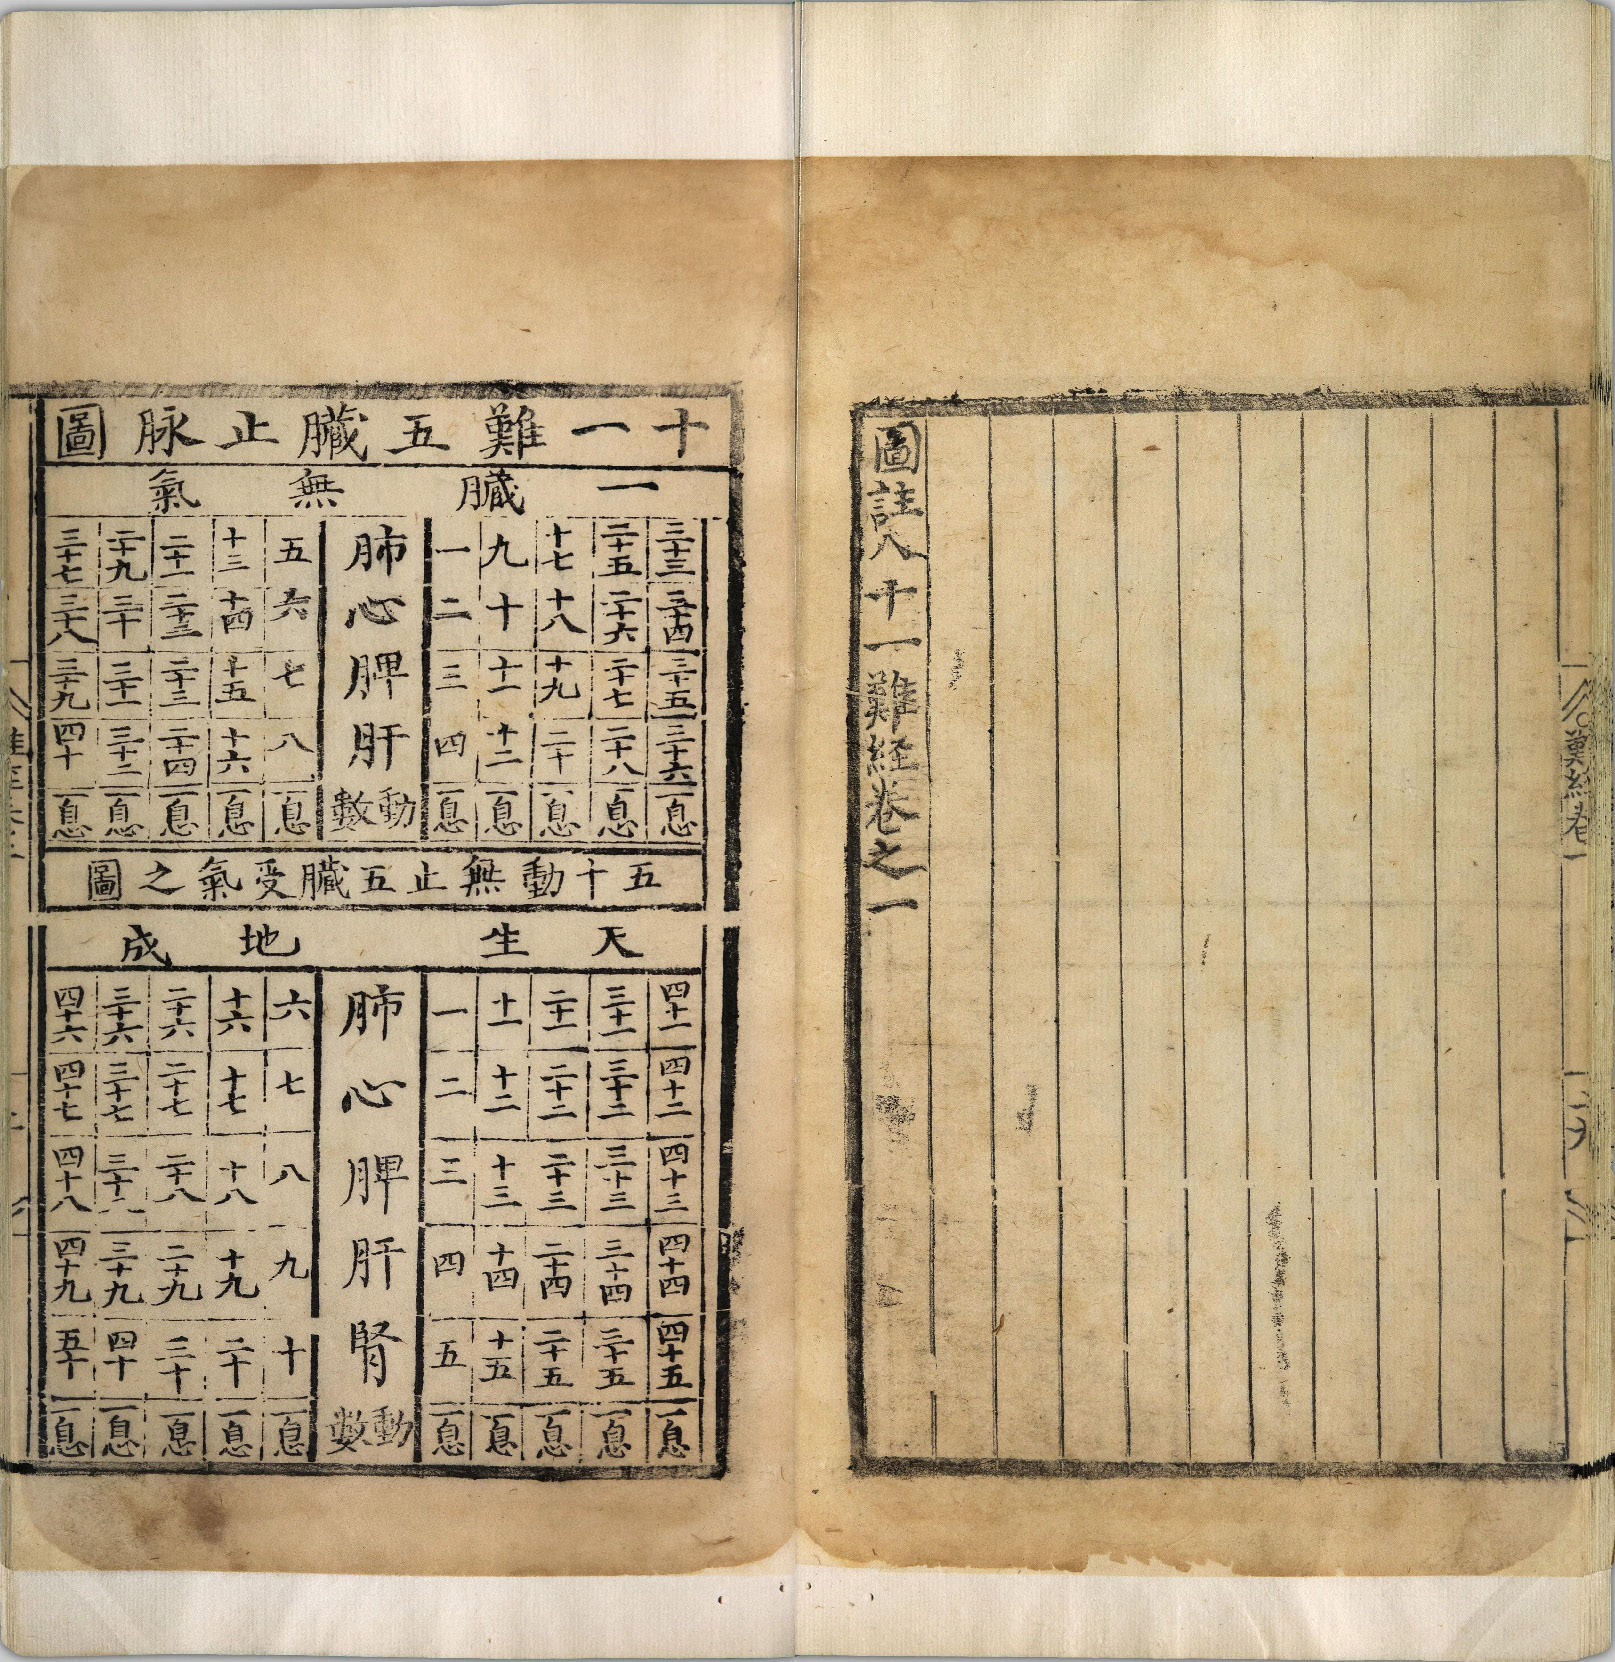 難經卷一
十九
圖註八十一難経卷之一
十一難五臟止脉圖
一臟無氣
三十三 三十四 三十五 三十六 一息
二十五 二十六 二十七 二十八 一息
十七 十八 十九 二十 一息
九 十 十一 十二 一息
一 二 三 四 一息
肺 心 脾 肝 動數
五 六 七 八 一息
十三 十四 十五 十六 一息
二十一 二十二 二十三 二十四 一息
二十九 三十 三十一 三十二 一息
三十七 三十八 三十九 四十 一息
五十動無止五臟受氣之圖
天生地成
四十一 四十二 四十三 四十四 四十五 一息
三十一 三十二 三十三 三十四 三十五 一息
二十一 二十二 二十三 二十四 二十五 一息
十一 十二 十三 十四 十五 一息
一 二 三 四 五 一息
肺 心 脾 肝 腎 動數
六 七 八 九 十 一息
十六 十七 十八 十九 二十 一息
二十六 二十七 二十八 二十九 三十 一息
三十六 三十七 三十八 三十九 四十 一息
四十六 四十七 四十八 四十九 五十 一息